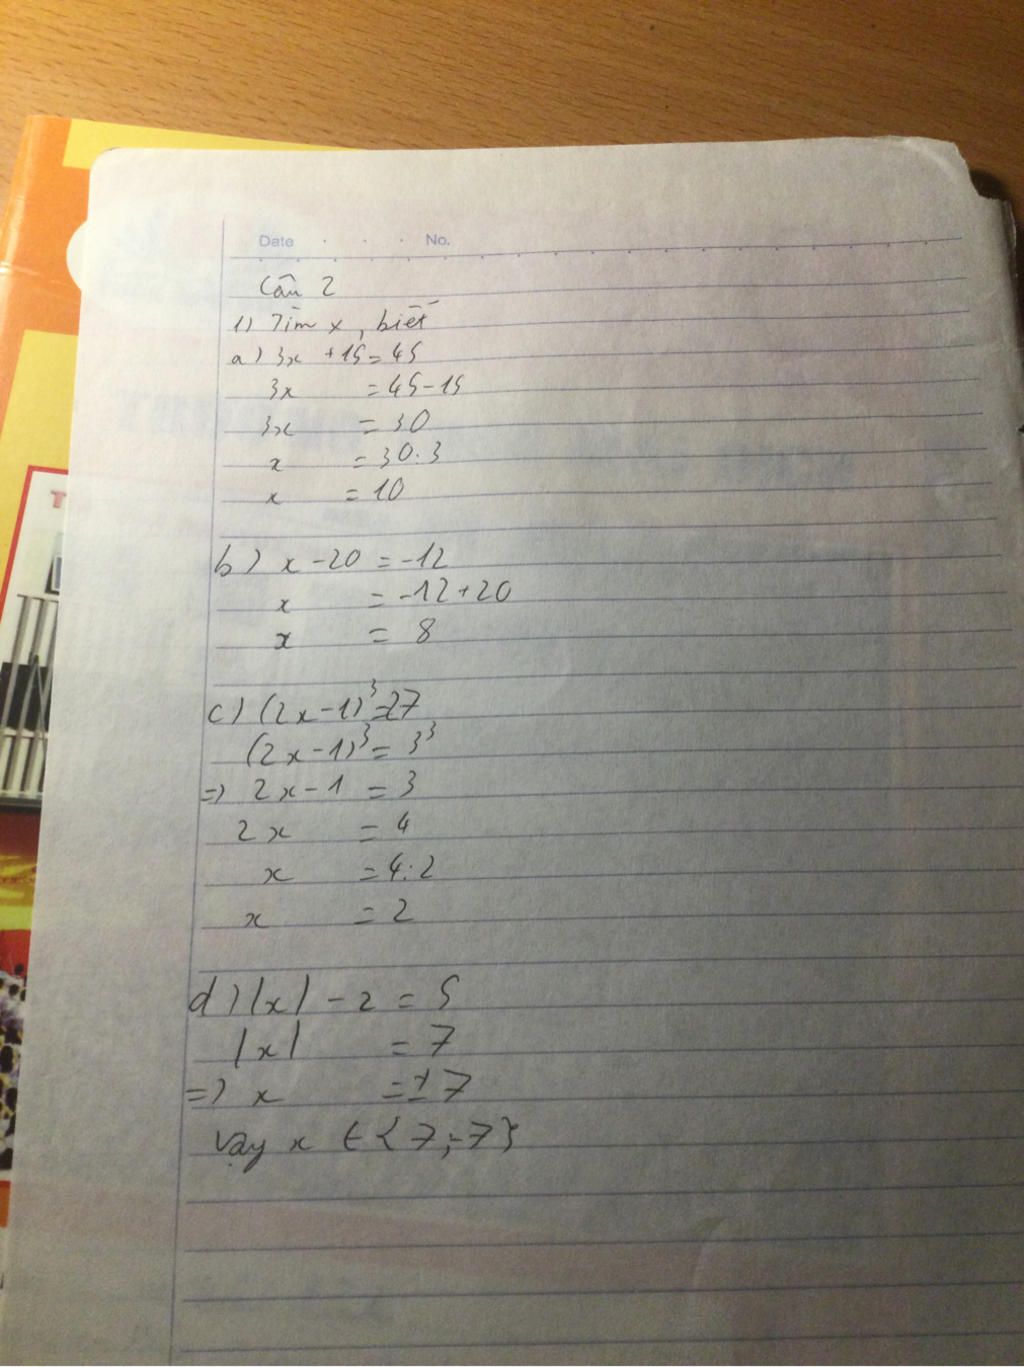 Date No.
Câu 2
1) Tìm x, biết
a) 3x + 15 = 45
3x = 45 - 15
3x = 30
x = 30:3
x = 10
b) x - 20 = -12
x = -12 + 20
x = 8
c) (2x - 1)³ = 27
(2x - 1)³ = 3³
=> 2x - 1 = 3
2x = 4
x = 4:2
x = 2
d) |x| - 2 = 5
|x| = 7
=> x = ±7
Vậy x ∈ {7; -7}